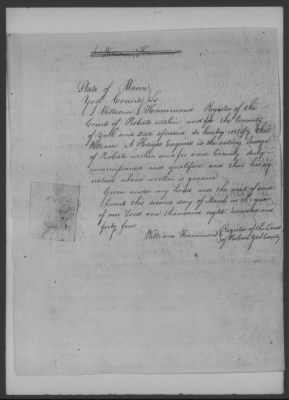 State of Maine
York County Ss
I William Hammond Register of the
Court of Probate within and for the County
of York and State aforesaid do hereby certify that
William A Hayes Esquire is the acting Judge
of Probate within and for said County duly
commissioned and qualified and that his sig
nature above written is genuine
Given under my hand and the seal of said
Court this second day of March in the year
of our Lord one thousand eight hundred and
forty four
William Hammond Register of the Court
of Probate York County